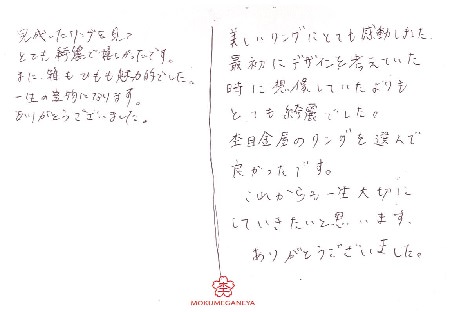 完成したリングを見て
とても綺麗で嬉しかったです。
また、箱もひもも魅力的でした。
一生の宝物になります。
ありがとうございました。
美しいリングにとても感動しました。
最初にデザインを考えていた
時に想像していたよりも
とても綺麗でした。
杢目金屋のリングを選んで
良かったです。
これからも一生大切に
していきたいと思います。
ありがとうございました。
MOKUMEGANEYA